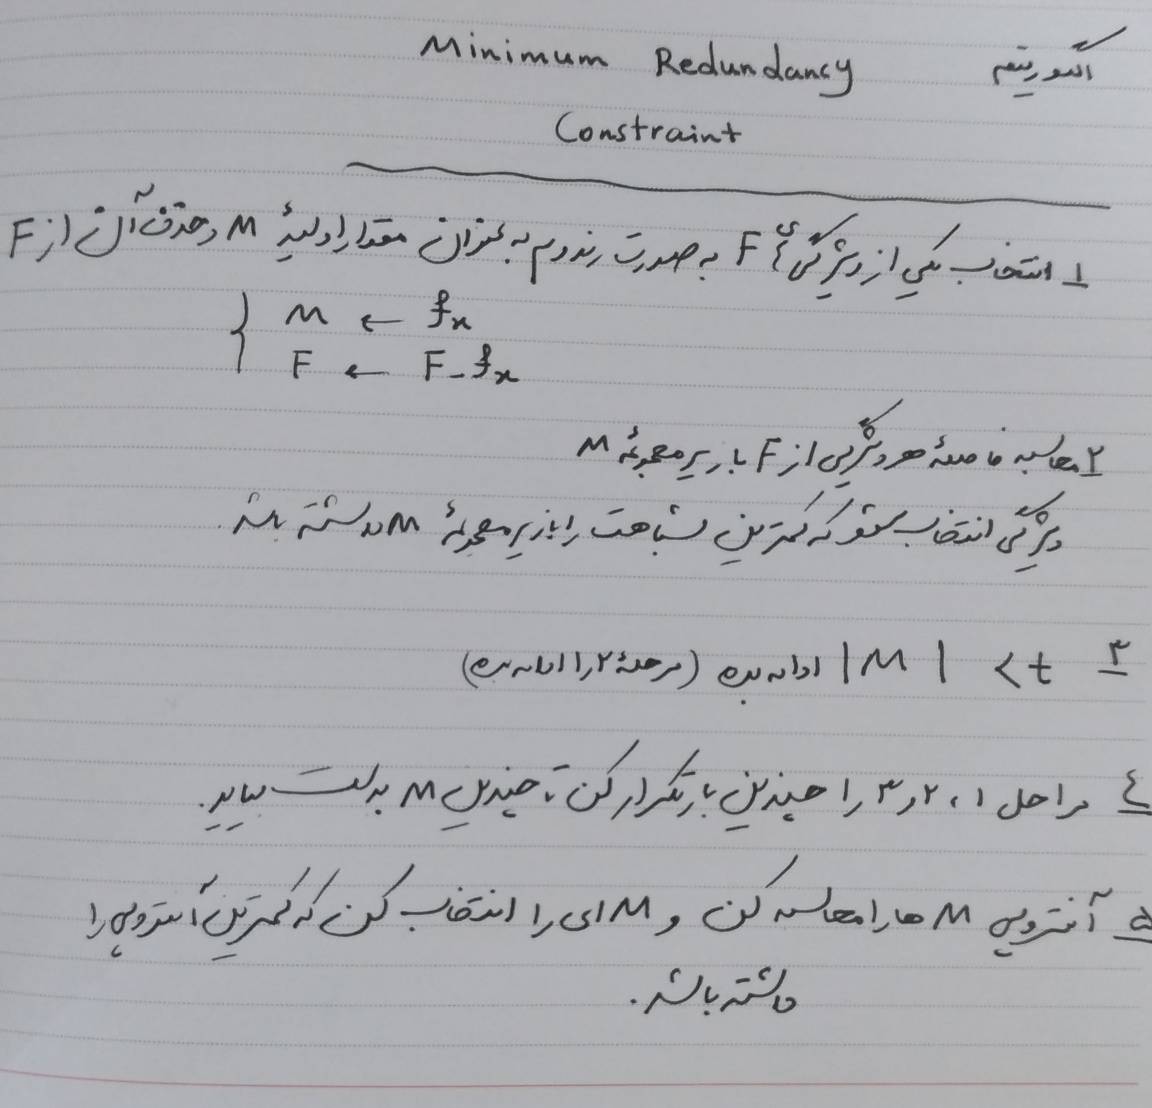 الگوریتم Minimum Redundancy
Constraint
۱ انتخاب یکی از ویژگی‌های F به صورت رندوم به عنوان مقدار اولیهٔ M و حذف آن از F
M ← fx
F ← F - fx
۲ محاسبه فاصلهٔ هر ویژگی از F با زیرمجموعهٔ M
ویژگی انتخاب شود که کمترین شباهت را با زیرمجموعهٔ M داشته باشد.
۳ |M| < t ادامه بده (مرحلهٔ ۲ را ادامه بده)
٤ مراحل ۱، ۲ و ۳ را چندین بار تکرار کن تا چندین M بدست بیاید.
۵ آنتروپی M ها را محاسبه کن و M ای را انتخاب کن که کمترین آنتروپی را
داشته باشد.